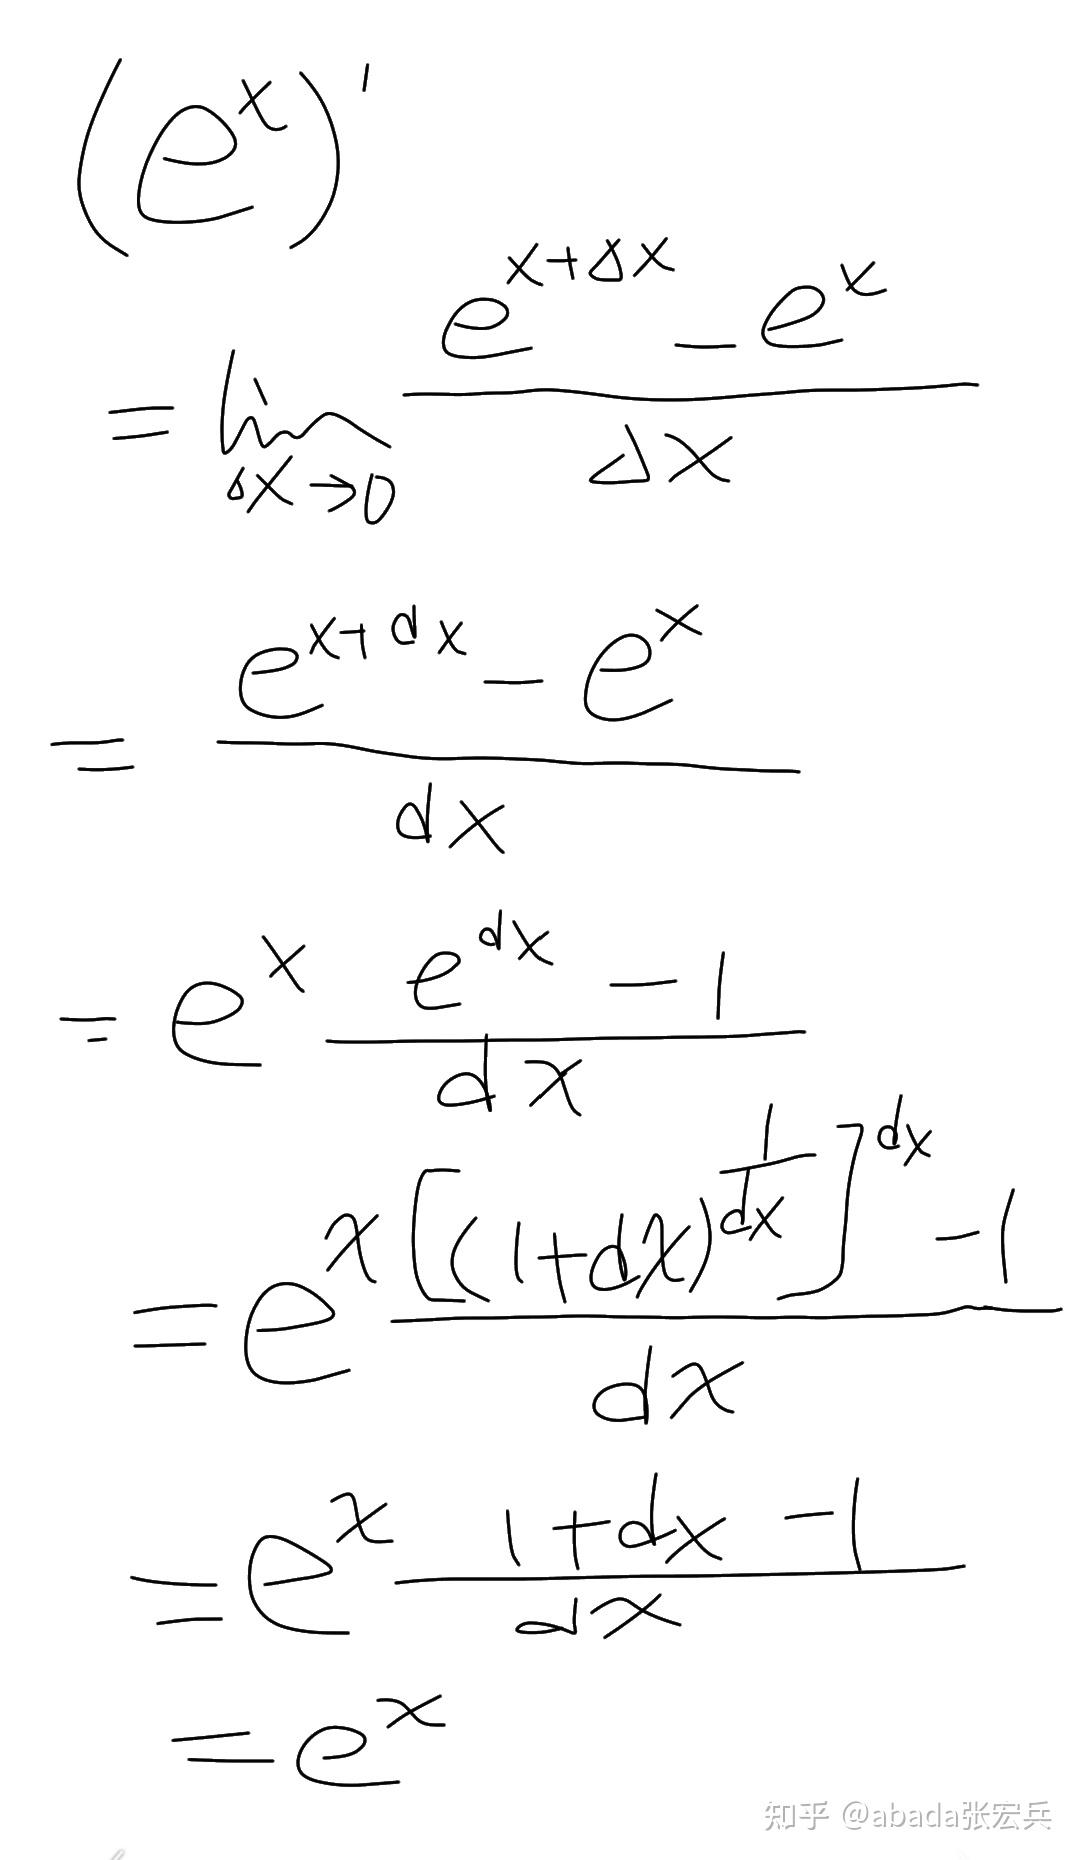 (e^x)'
= lim_{Δx→0} \frac{e^{x+Δx} - e^x}{Δx}
= \frac{e^{x+dx} - e^x}{dx}
= e^x \frac{e^{dx} - 1}{dx}
= e^x \frac{[(1+dx)^{\frac{1}{dx}}]^{dx} - 1}{dx}
= e^x \frac{1+dx-1}{dx}
= e^x
知乎 @abada张宏兵